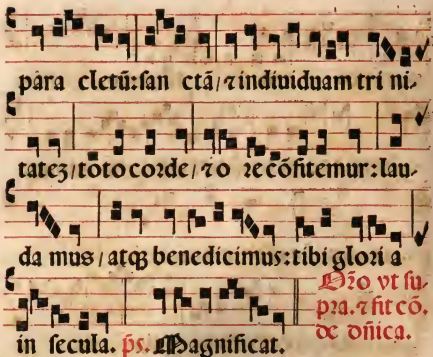 para cletū:san ctā/⁊ indiuiduam tri ni-
tatez/toto corde/⁊ o re cōfitemur:lau-
da mus/atqꝫ benedicimus:tibi glori a
Oꝛo vt su
in secula. p̄s. Magnificat.
pꝛa.⁊ fit cō.
de dñica.